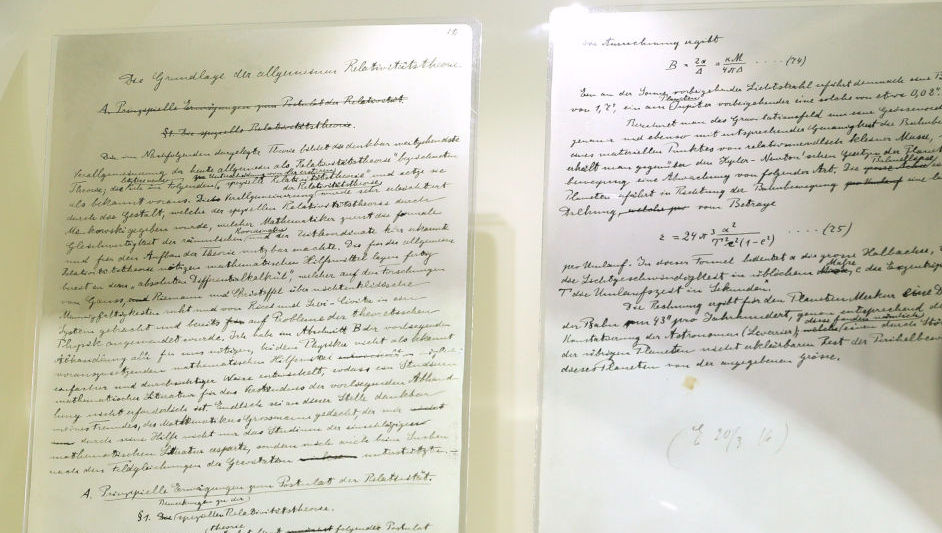 Die Grundlage der allgemeinen Relativitätstheorie.
A. Prinzipielle Erwägungen zum Postulat der Relativität.
§1. Die spezielle Relativitätstheorie.
Die im Nachfolgenden dargelegte Theorie bildet die denkbar weitgehendste
Verallgemeinerung der heute allgemein als "Relativitätstheorie" bezeichneten
Theorie; die
im folgenden "spezielle Relativitätstheorie" und setze sie
als bekannt voraus. Die Verallgemeinerung
der Relativitätstheorie
wurde sehr erleichtert
durch die Gestalt, welche der speziellen Relativitätstheorie durch
Minkowski gegeben wurde, welcher Mathematiker zuerst die formale
Gleichwertigkeit der räumlichen
Koordinaten
und der Zeitkoordinate klar erkannte
und für den Aufbau der Theorie nutzbar machte. Die für die allgemeine
Relativitätstheorie nötigen mathematischen Hilfsmittel lagen fertig
bereit in dem "absoluten Differentialkalkül", welcher auf den Forschungen
von Gauss, und Riemann und Christoffel über nichteuklidische
Mannigfaltigkeiten ruht und von Ricci und Levi-Civita in ein
System gebracht und bereits auf Probleme der theoretischen
Physik angewendet wurde. Ich habe im Abschnitt B der vorliegenden
Abhandlung alle für uns nötigen, bei dem Physiker nicht als bekannt
vorauszusetzenden mathematischen Hilfsmittel in möglichst
einfacher und durchsichtiger Weise entwickelt, sodass ein Studium
mathematischer Literatur für das Verständnis der vorliegenden Abhand
lung nicht erforderlich ist. Endlich sei an dieser Stelle dankbar
meines Freundes, des Mathematikers Grossmann gedacht, der mir
durch seine Hilfe nicht nur das Studium der einschlägigen
mathematischen Literatur ersparte, sondern mich auch beim Suchen
nach den Feldgleichungen der Gravitation unterstützte.
A. Prinzipielle Erwägungen zum Postulat der Relativität.
Bemerkungen zu der
§1. Die speziellen Relativitätstheorie.
theorie
folgendes Postulat
Die Ausrechnung ergibt
B = 2α/Δ = κM/4πΔ ..... (74)
Ein an der Sonne vorbeigehender Lichtstrahl erfährt demnach eine B
von 1,7", ein am
Planeten
Jupiter vorbeigehender eine solche von etwa 0,02".
Berechnet man das Gravitationsfeld um eine Grössenord
genauer und ebenso mit entsprechender Genauigkeit die Bahnbewe
eines materiellen Punktes von relativ unendlich kleiner Masse,
erhält man gegenüber den Kepler-Newton'schen Gesetzen der Planet
bewegung eine Abweichung von folgender Art. Die
Bahnellipse
Planeten führt in Richtung der Bahnbewegung eine
Drehung, vom Betrage
ε = 24π³ a²/T²c²(1-e²) ..... (75)
pro Umlauf. In dieser Formel bedeutet a die grosse Halbachse, c
die Lichtgeschwindigkeit in üblichem
Masse
, e die Exzentrizi
T die Umlaufszeit in Sekunden.
Die Rechnung ergibt für den Planeten Merkur eine D
der Bahn um 43" pro Jahrhundert, genau entsprechend d
Konstatierung der Astronomen (Leverrier);
diese fanden nämlich
einen durch Stö
der übrigen Planeten nicht erklärbaren Rest der Perihelbew
dieses Planeten von der angegebenen Grösse.
(E 20/3 16)